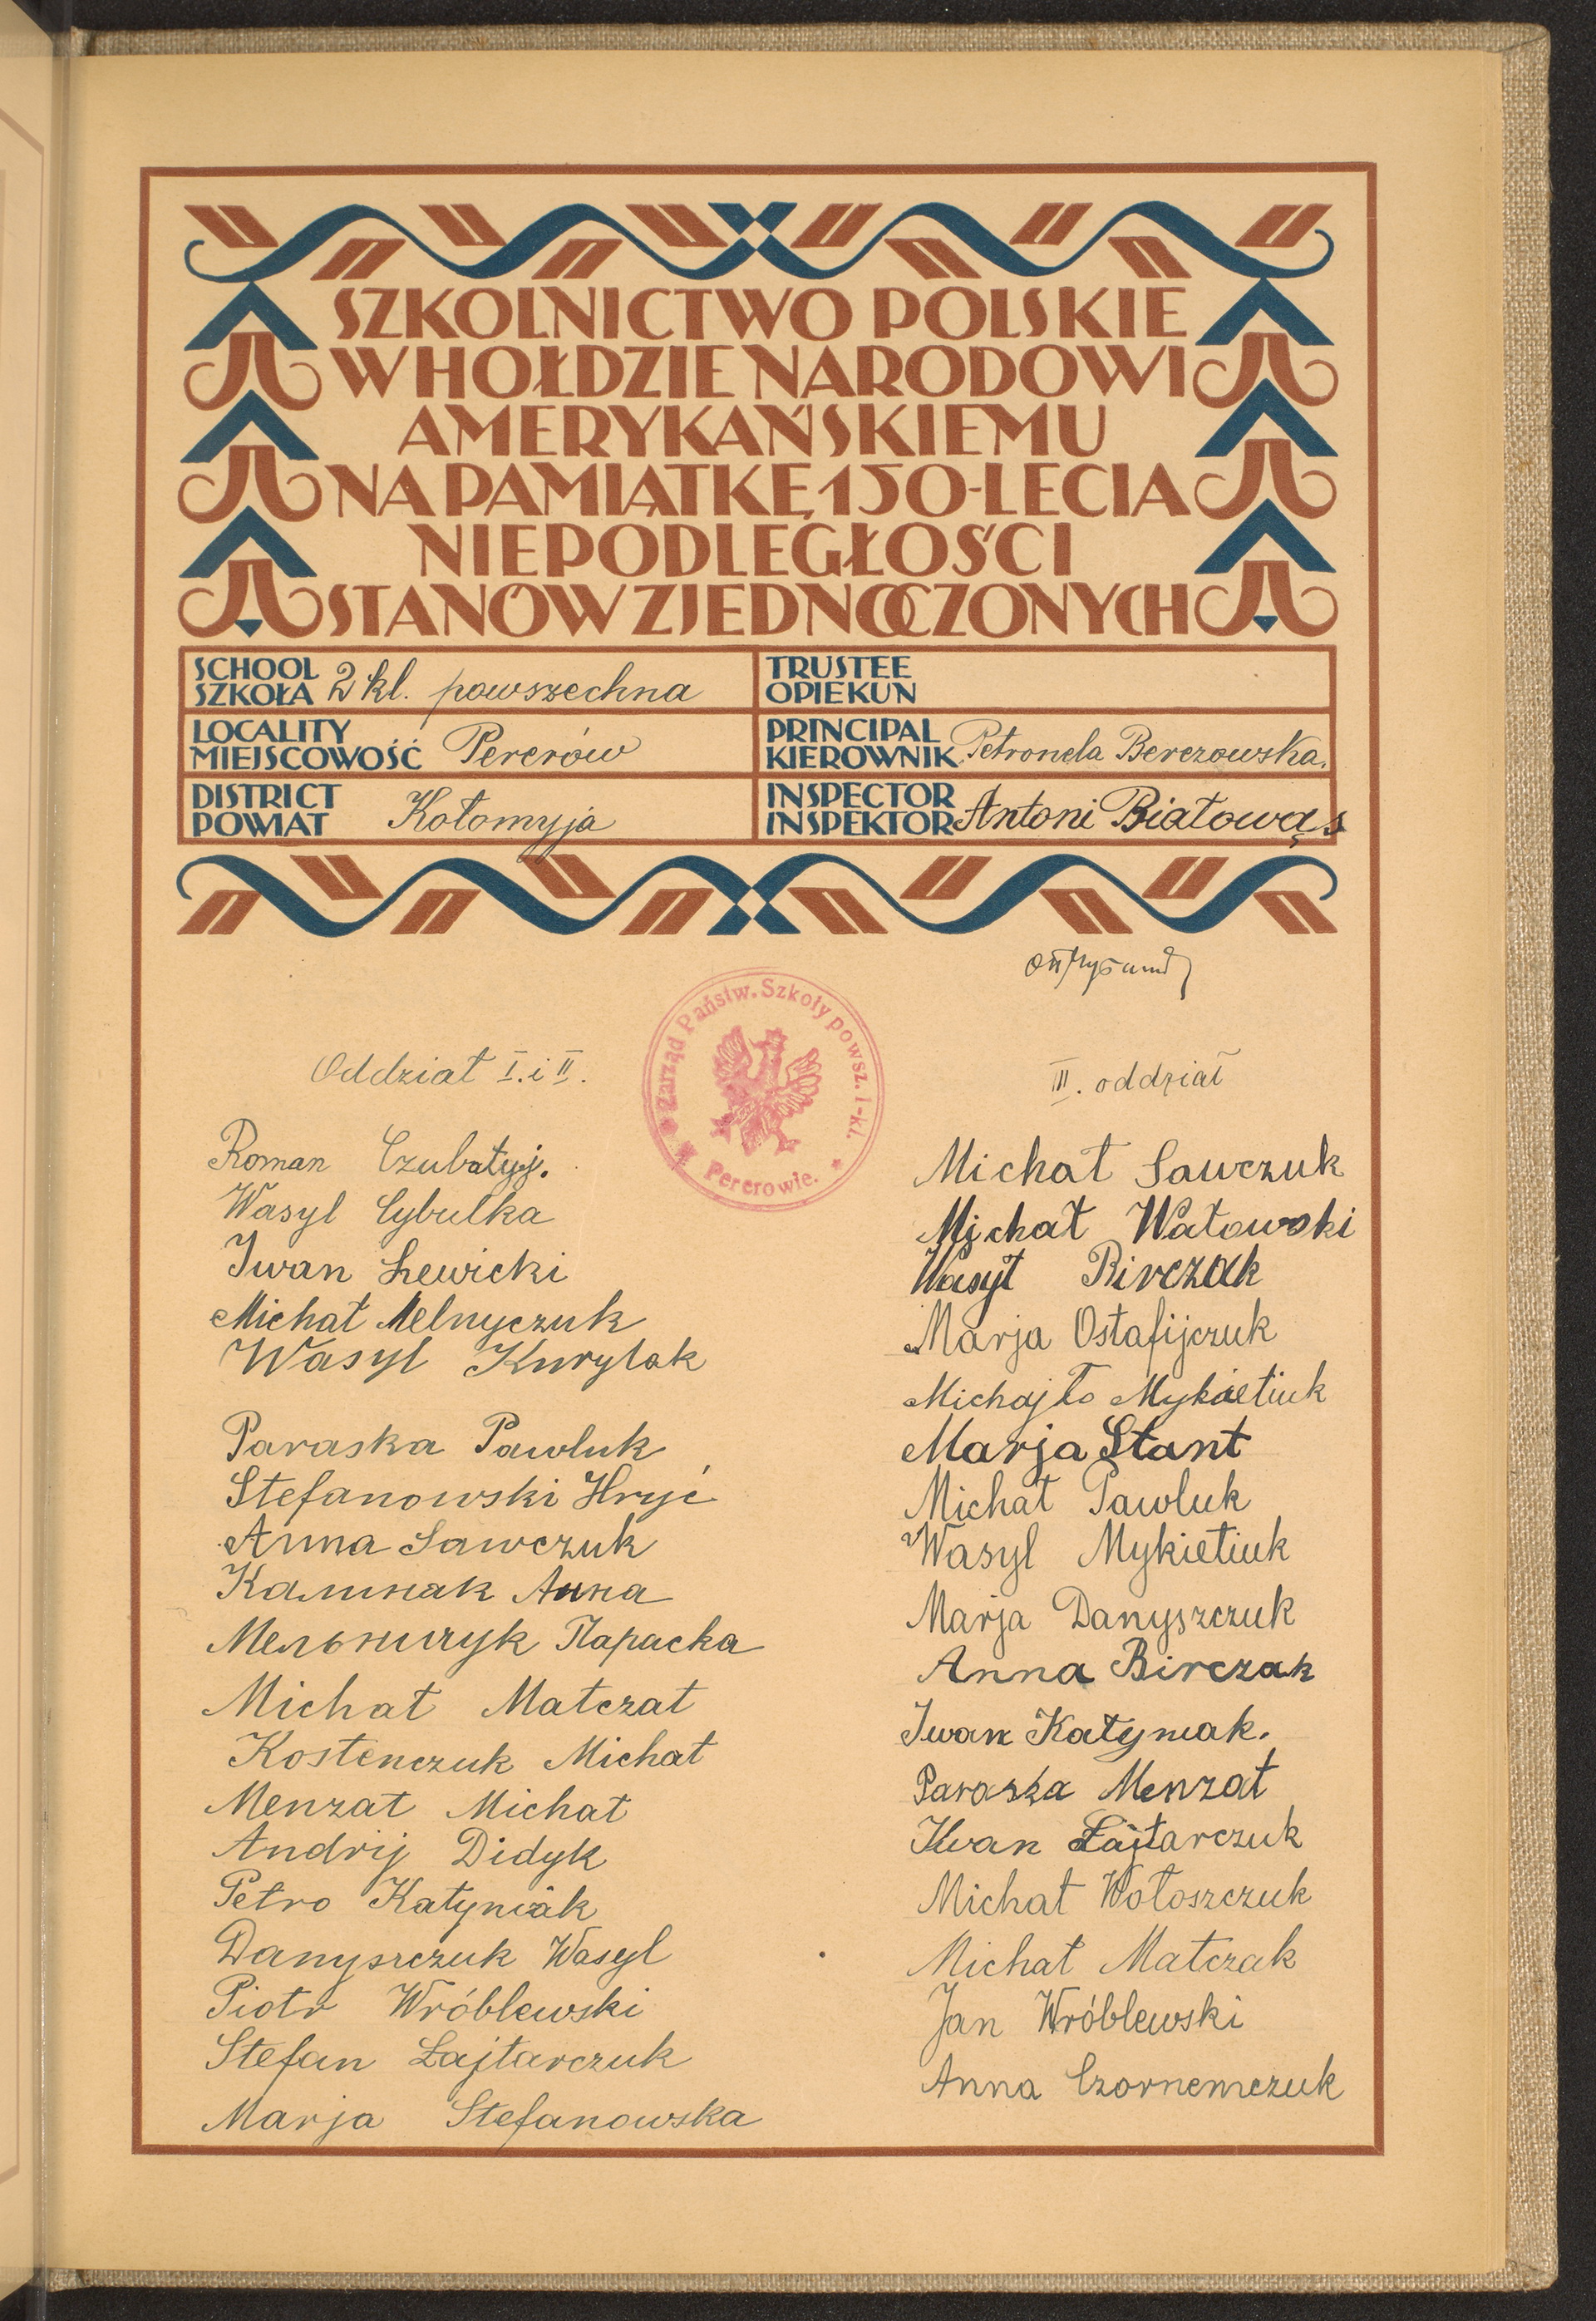 SZKOLNICTWO POLSKIE
W HOŁDZIE NARODOWI
AMERYKAŃSKIEMU
NA PAMIĄTKĘ 150-LECIA
NIEPODLEGŁOŚCI
STANÓW ZJEDNOCZONYCH
SCHOOL
SZKOŁA 2 kl. powszechna
TRUSTEE
OPIEKUN
LOCALITY
MIEJSCOWOŚĆ Pererów
PRINCIPAL
KIEROWNIK Petronela Berezowska.
DISTRICT
POWIAT Kołomyja
INSPECTOR
INSPEKTOR Antoni Białowąs
Zarząd Państw. Szkoły powsz. 1-kl.
Pererowie.
Oddział I. i II.
Roman Czubatyj.
Wasyl Cybulka
Iwan Lewicki
Michał Melnyczuk
Wasyl Kurylak
Paraska Pawluk
Stefanowski Hryć
Anna Sawczuk
Мельничук Параска
Michał Matczat
Kostenczuk Michał
Menzat Michał
Andrij Didyk
Petro Katyniak
Danyszczuk Wasyl
Piotr Wróblewski
Stefan Łajtarczuk
Marja Stefanowska
III. oddział
Michał Sawczuk
Michał Watowski
Wasył Birczak
Marja Ostafijczuk
Michajło Mykietiuk
Marja Stant
Michał Pawluk
Wasyl Mykietiuk
Marja Danyszczuk
Anna Birczak
Iwan Katyniak.
Paraska Menzat
Iwan Łajtarczuk
Michał Wołoszczuk
Michał Matczak
Jan Wróblewski
Anna Czornemczuk